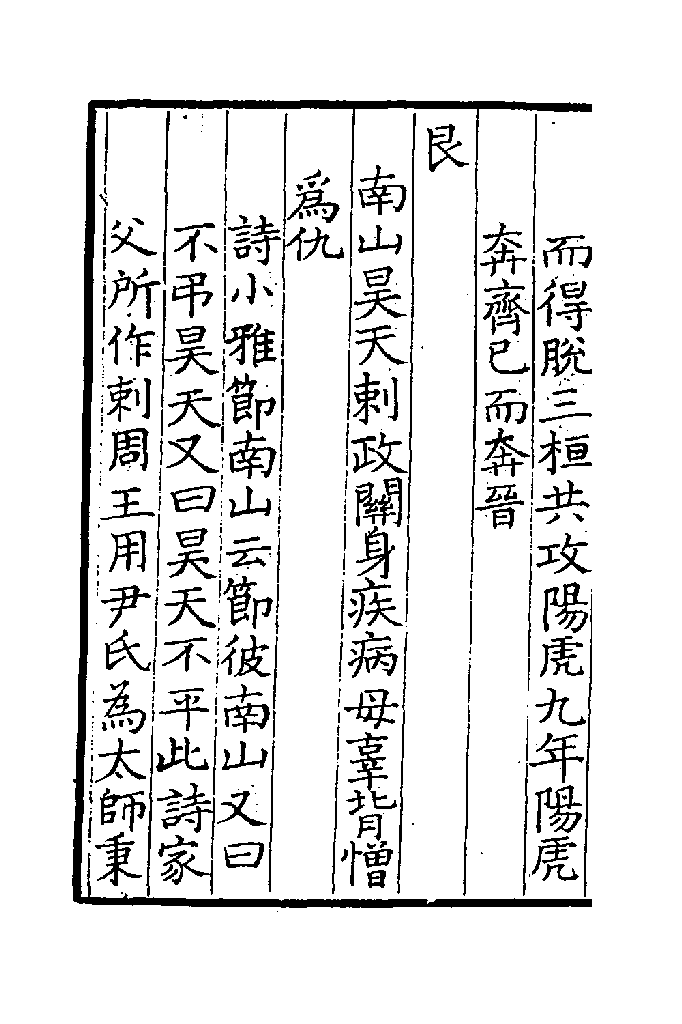 而得脫三桓共攻陽虎九年陽虎
奔齊已而奔晉
艮
南山昊天刺政關身疾病母辜背憎
爲仇
詩小雅節南山云節彼南山又曰
不弔昊天又曰昊天不平此詩家
父所作刺周王用尹氏為太師秉